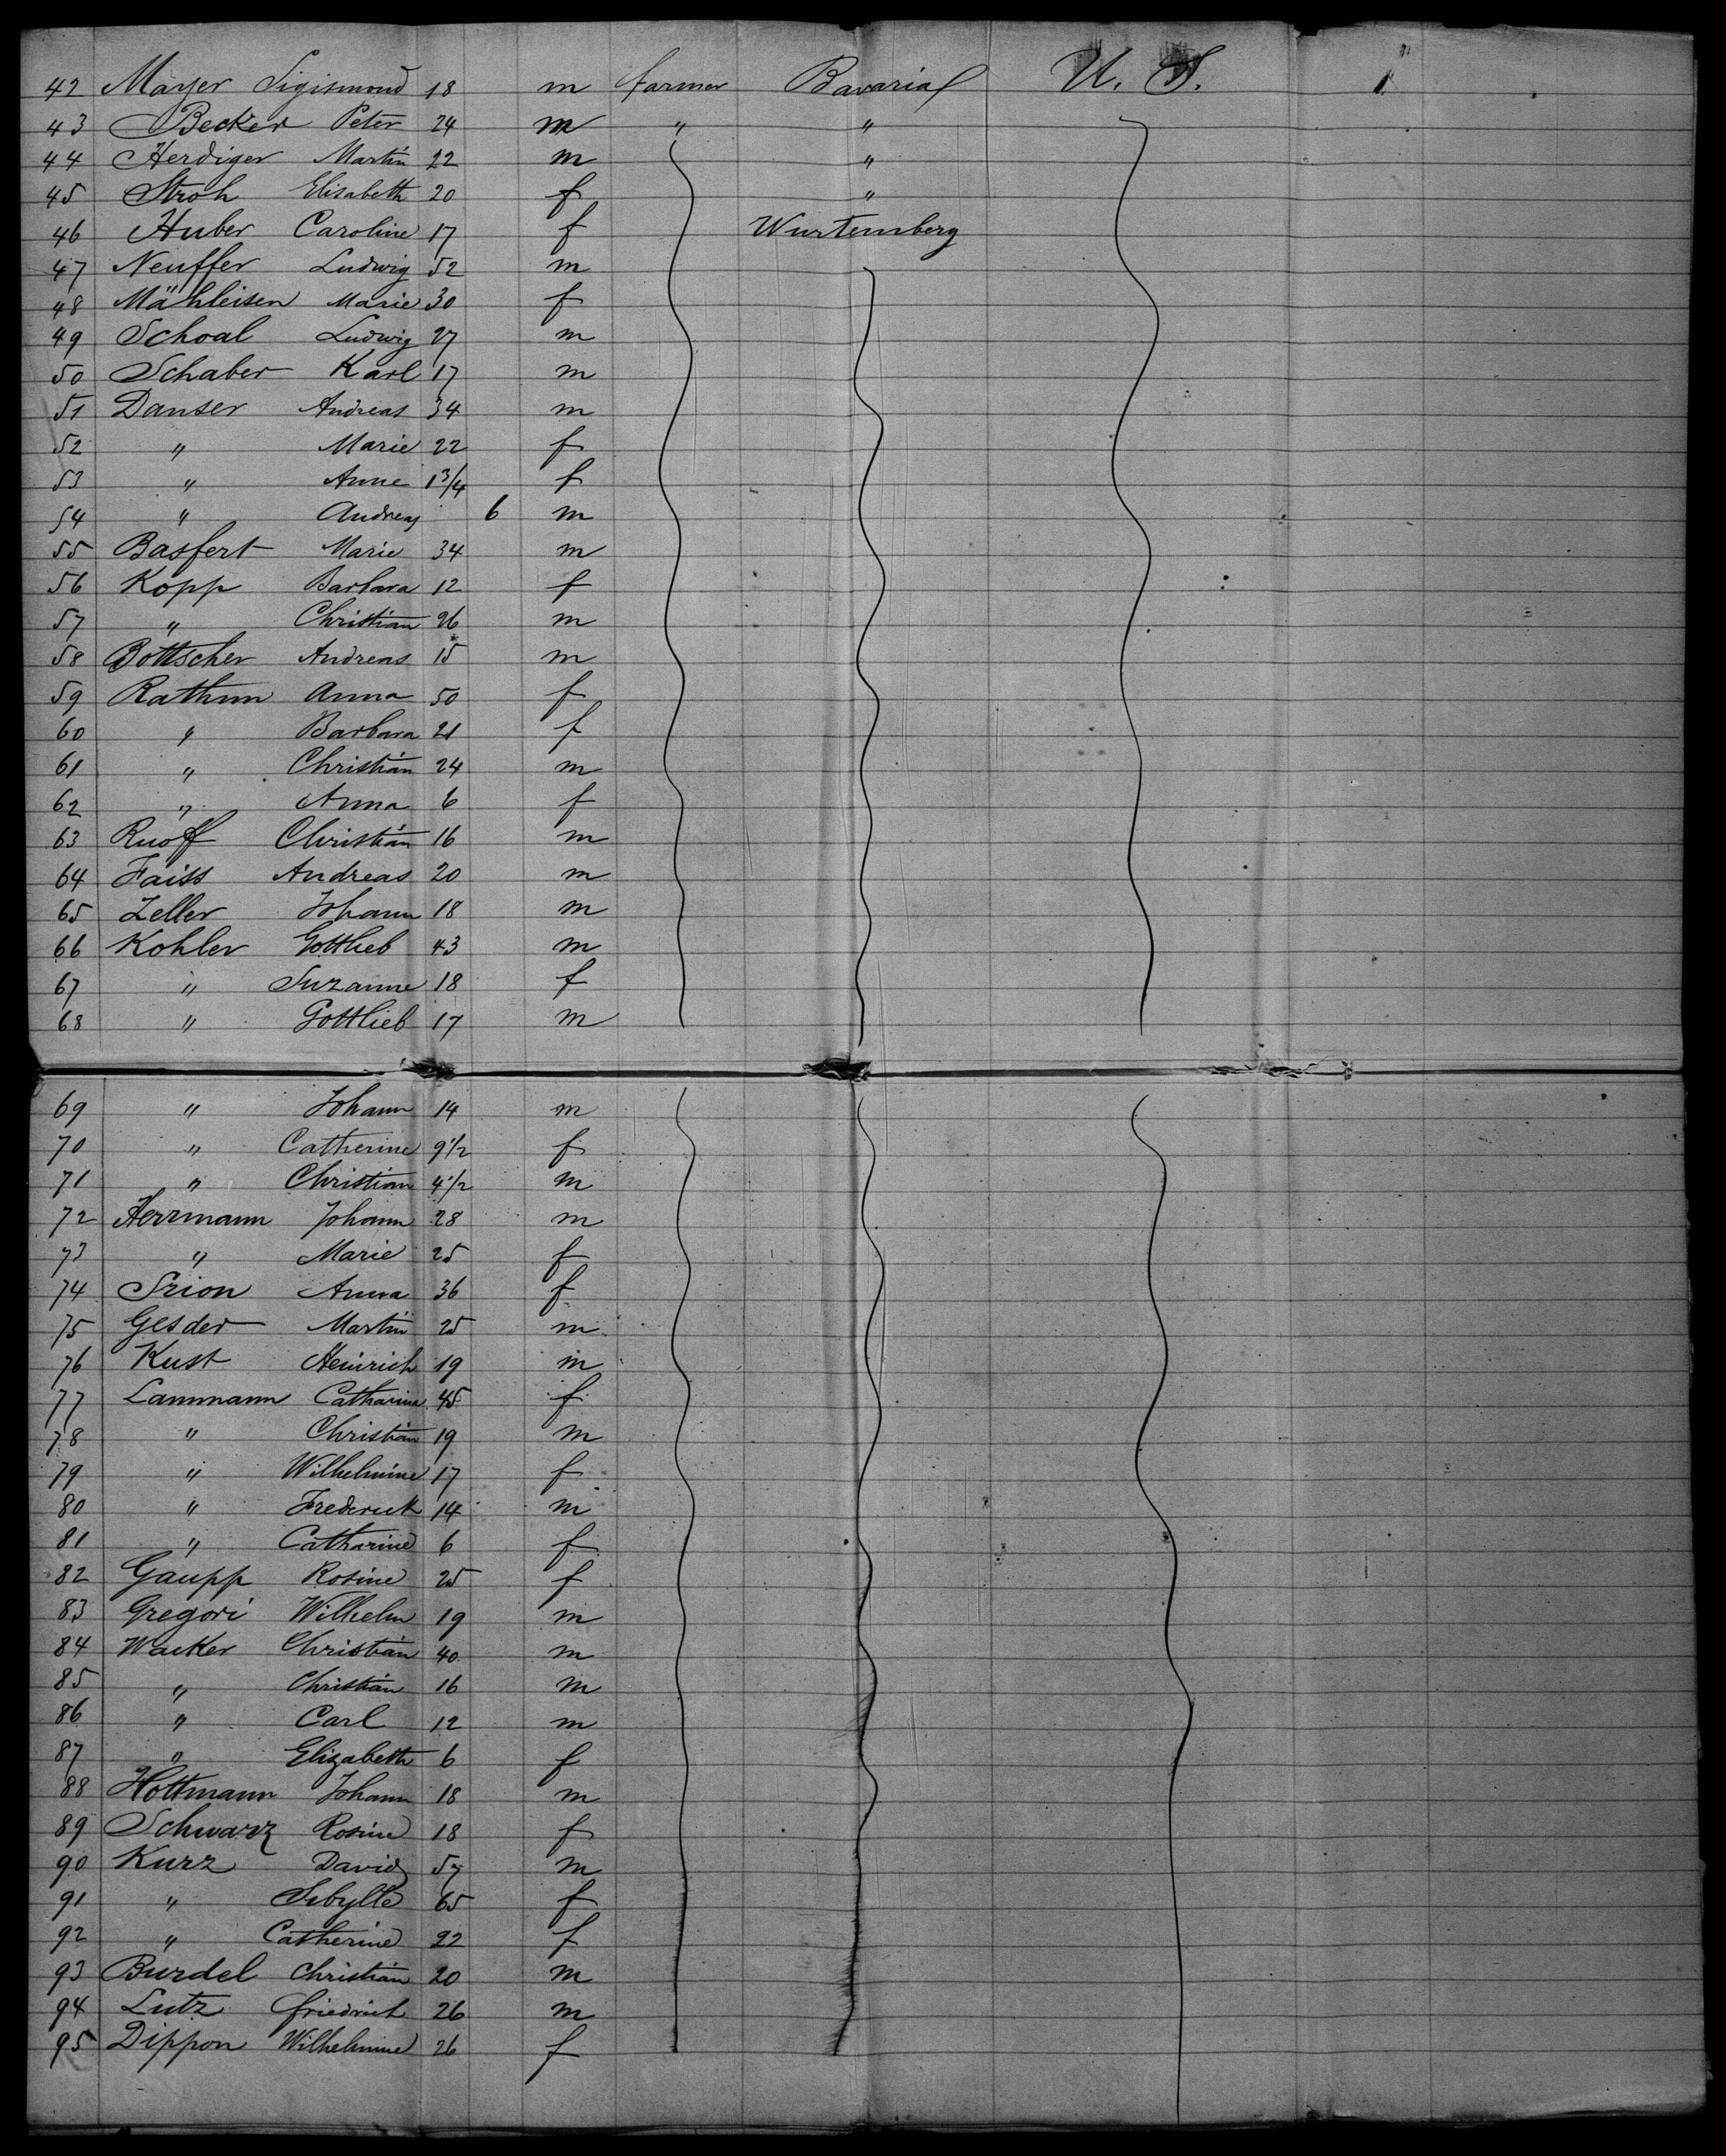 42 Mayer Sigismond 18 m farmer Bavaria U. S.
43 Becker Peter 24 m " "
44 Herdiger Martin 22 m "
45 Stroh Elisabeth 20 f "
46 Huber Caroline 17 f Wurtemberg
47 Neuffer Ludwig 52 m
48 Mähleisen Marie 30 f
49 Schoal Ludwig 27 m
50 Schaber Karl 17 m
51 Danser Andreas 34 m
52 " Marie 22 f
53 " Anne 1 3/4 f
54 " Andreas 6 m
55 Basfert Marie 34 m
56 Kopp Barbara 12 f
57 " Christian 26 m
58 Böttscher Andreas 15 m
59 Rathum Anna 50 f
60 " Barbara 21 f
61 " Christian 24 m
62 " Anna 6 f
63 Ruoff Christian 16 m
64 Faiss Andreas 20 m
65 Zeller Johann 18 m
66 Kohler Gottlieb 43 m
67 " Suzanne 18 f
68 " Gottlieb 17 m
69 " Johann 14 m
70 " Catherine 9 1/2 f
71 " Christian 4 1/2 m
72 Herrmann Johann 28 m
73 " Marie 25 f
74 Srion Anna 36 f
75 Gesder Martin 25 m
76 Kust Heinrich 19 m
77 Lammann Catharina 45 f
78 " Christian 19 m
79 " Wilhelmine 17 f
80 " Frederick 14 m
81 " Catharine 6 f
82 Gaupp Rosine 25 f
83 Gregori Wilhelm 19 m
84 Wacker Christian 40 m
85 " Christian 16 m
86 " Carl 12 m
87 " Elizabeth 6 f
88 Hottmann Johann 18 m
89 Schwarz Rosine 18 f
90 Kurz David 57 m
91 " Sibylle 65 f
92 " Catherine 22 f
93 Burdel Christian 20 m
94 Lutz Friedrich 26 m
95 Dippon Wilhelmine 26 f